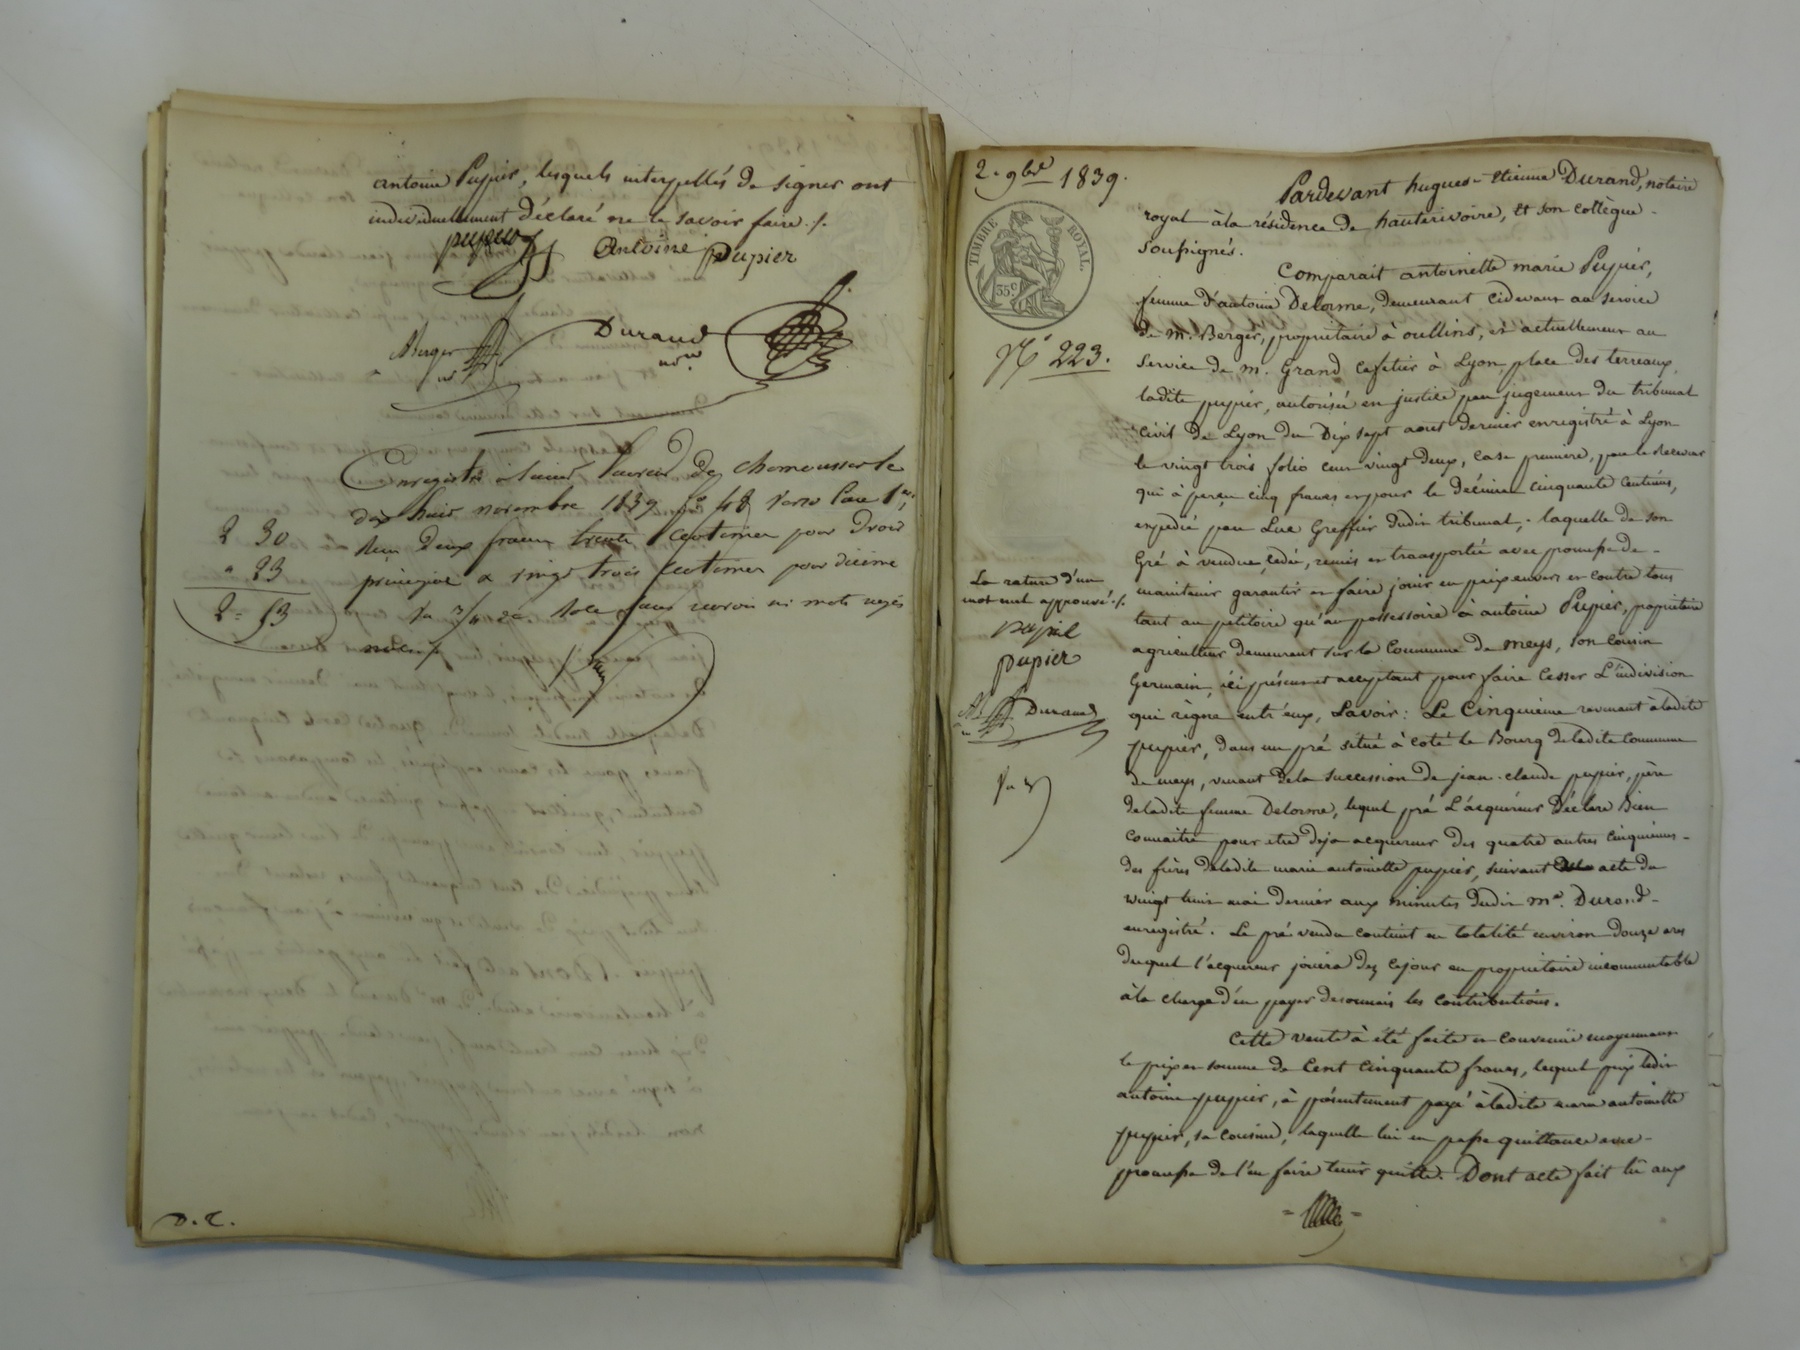 antoine Pupier, lesquels interpellés de signer ont
individuellement déclaré ne le savoir faire ./.
pupier
Antoine Pupier
Durand
nore
Enregistré à Saint Laurent de chamousset le
dix huit novembre 1839 fo 48 verso Case 1ere,
reçu deux francs trente centimes pour droit
principal et vingt trois centimes pour décime
2 30
" 23
2 = 53
D. C.
2. 9bre 1839.
TIMBRE ROYAL.
35 c
No 223.
Pardevant hugues-etienne Durand, notaire
royal à la résidence de hauterivoire, et son collègue
soussignés.
Comparait antoinette marie Pupier,
femme d'antoine Delorme, demeurant cidevant au service
de m. Berger, propriétaire à oullins, et actuellement au
service de m. Grand cafetier à Lyon, place des terreaux,
ladite pupier, autorisée en justice par jugement du tribunal
civil de Lyon du Dix sept aout dernier enregistré à Lyon
le vingt trois folio cent vingt deux, case première, par le receveur
qui à perçu cinq francs et pour le décime cinquante centimes,
expedié par Luc Greffier dudit tribunal, laquelle de son
Gré à vendu, cédé, remis et transporté avec promesse de
maintenir garantir et faire jouir en paix envers et contre tous
tant au pétitoire qu'au possessoire à antoine Pupier, propriétaire
agriculteur demeurant sur la Commune de meys, son cousin
Germain, ici présent et acceptant pour faire cesser L'indivision
qui règne entr'eux, Savoir : Le Cinquième revenant à ladite
pupier, dans un pré situé à coté le Bourg de ladite commune
de meys, venant de la succession de jean-claude pupier, père
de ladite femme Delorme, lequel pré L'acquéreur Déclare bien
connaitre pour etre deja acquereur des quatre autres cinquièmes
des frères de ladite marie antoinette pupier, suivant acte du
vingt huit mai dernier aux minutes dudit me. Durand
enregistré. Le pré vendu contient en totalité environ douze ares
duquel l'acquereur jouira dez ce jour en propriétaire incommutable
à la charge d'en payer desormais les contributions.
Cette vente à été faite et convenüe moyennant
le prix et somme de Cent Cinquante francs, lequel prix ledit
antoine pupier, à présentement payé à ladite marie antoinette
pupier, sa cousine, laquelle lui en passe quittance avec
promesse de l'en faire tenir quitte. Dont acte fait lû aux
La rature d'un
mot nul approuvé ./.
pupier
pupier
Durand